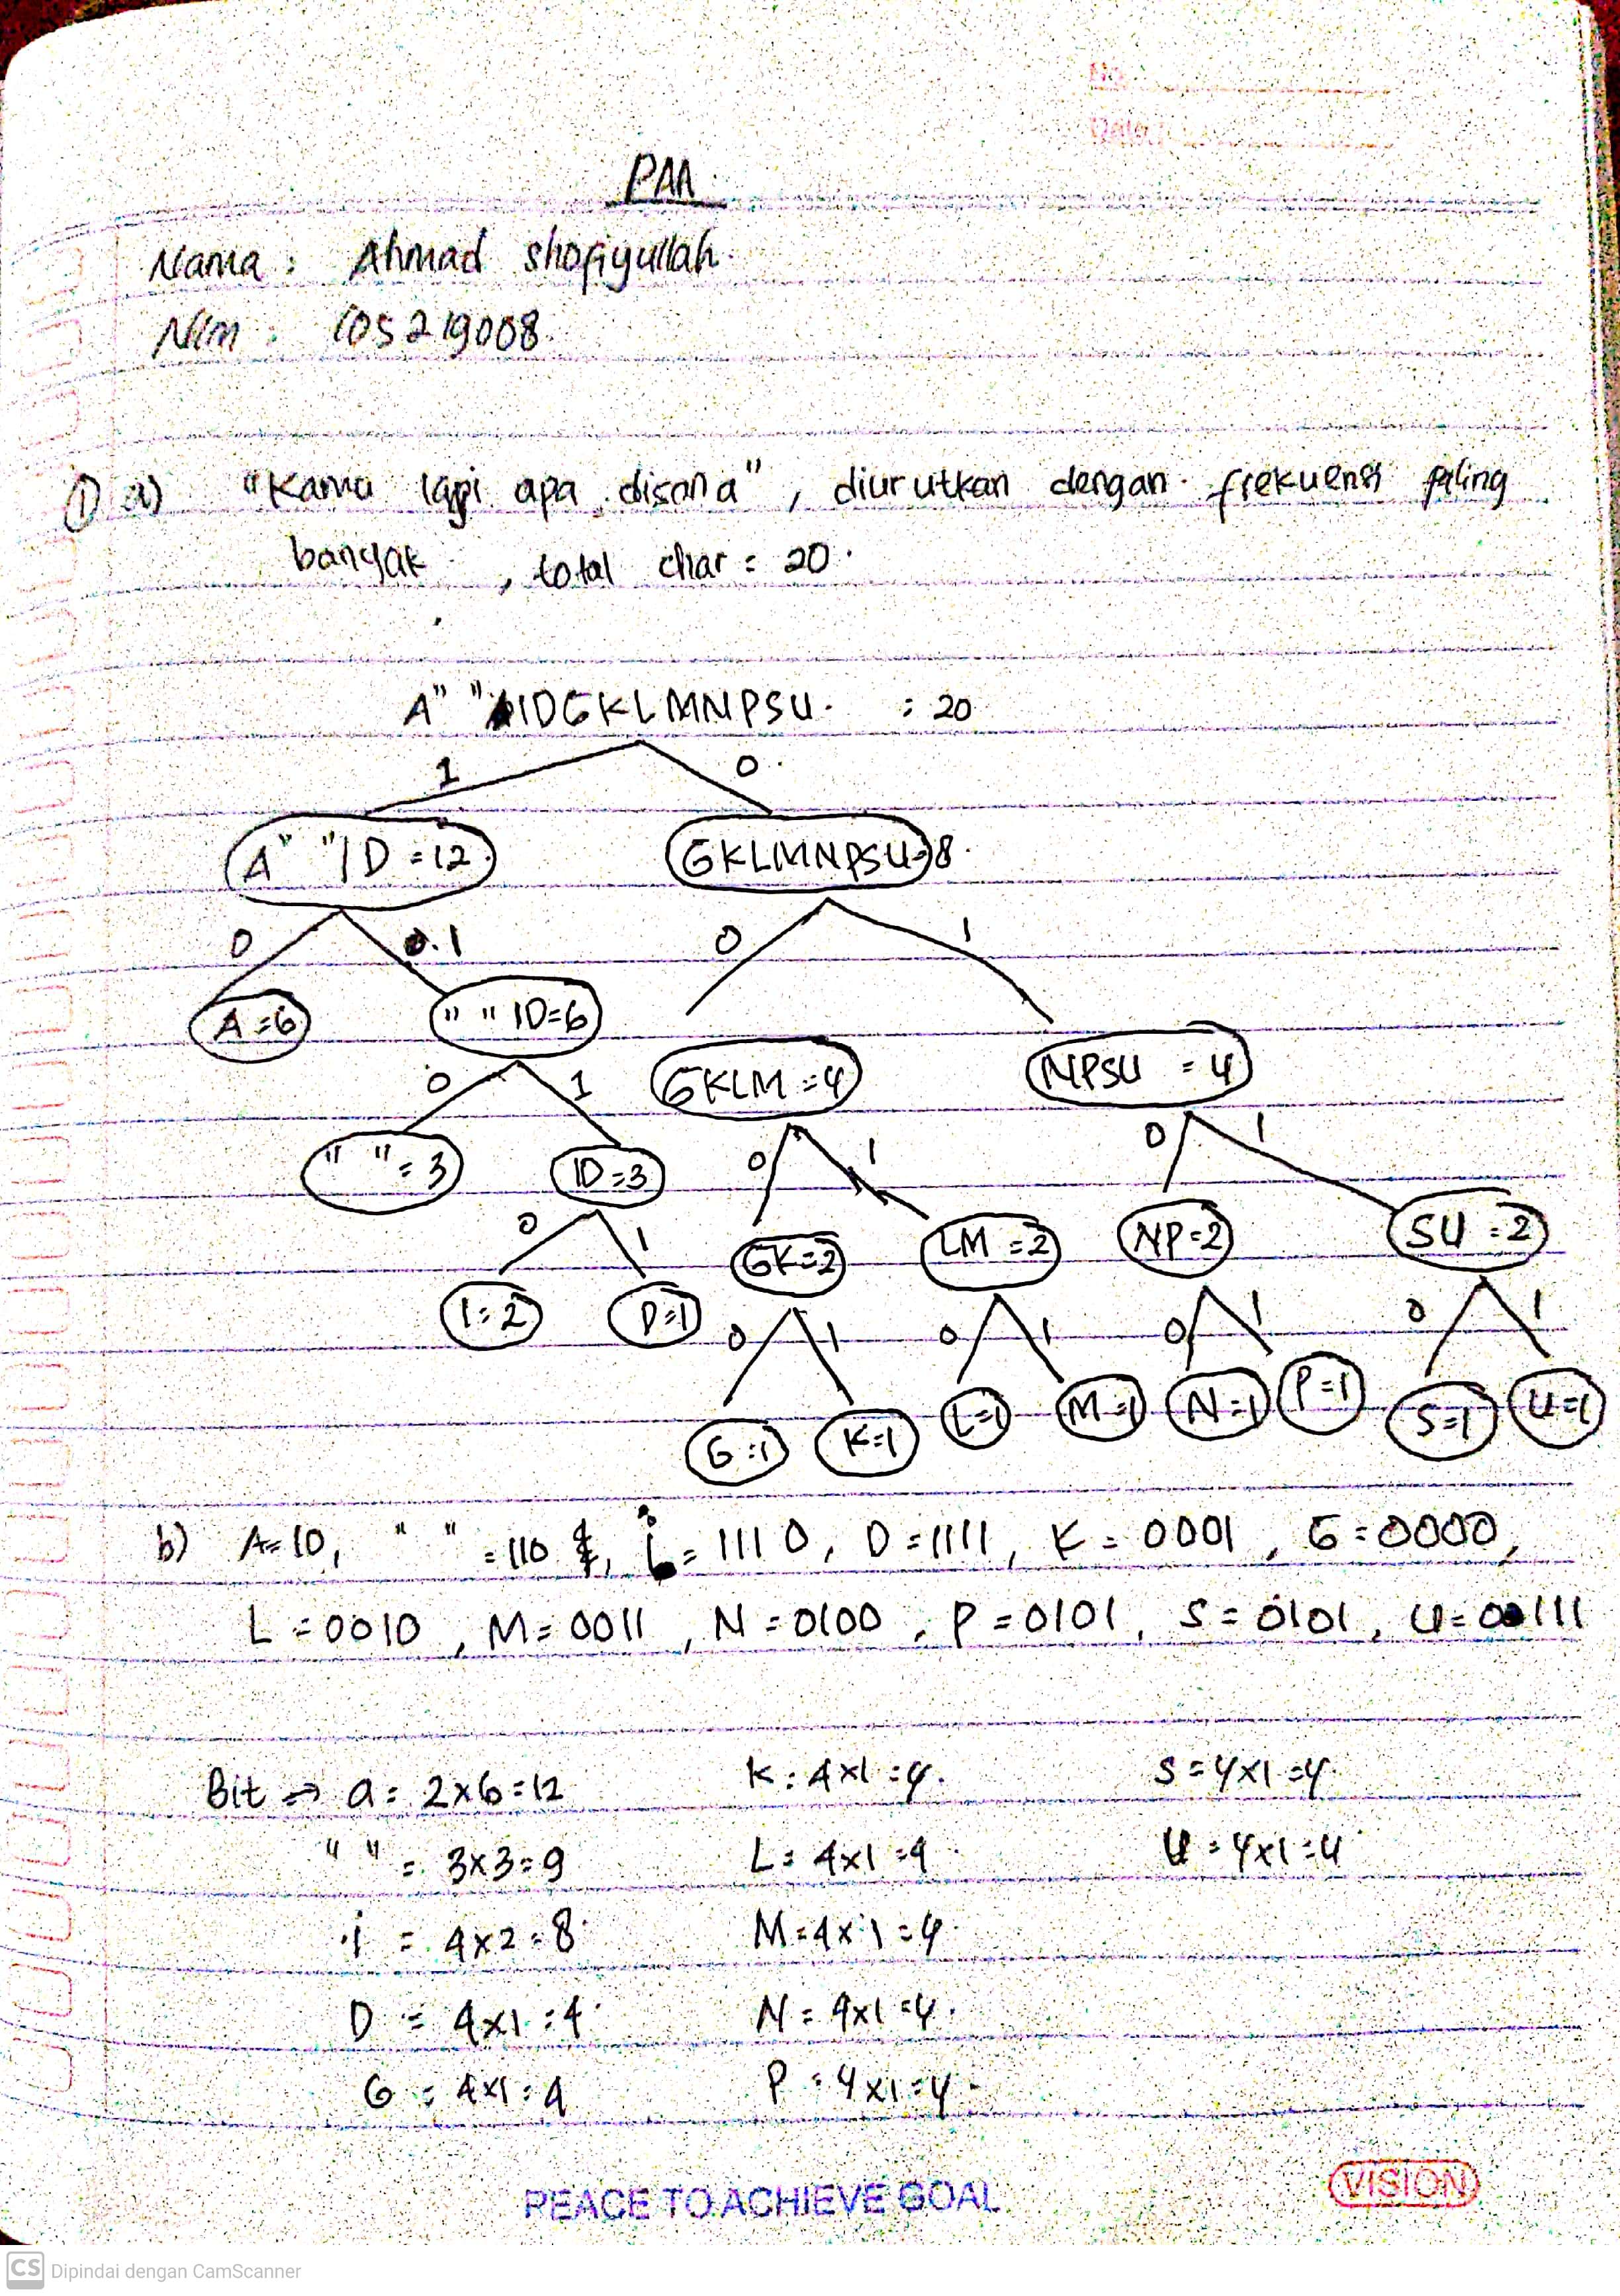 PAA
Nama : Ahmad shofiyullah.
Nim : 105219008.
① a) "Kamu lagi apa disana", diurutkan dengan frekuensi paling
banyak , total char = 20.
A" "IDGKLMNPSU. : 20
1 0
A" "ID=12 GKLMNPSU=8
0 1 0 1
A=6 " "ID=6
GKLM=4 NPSU=4
0 1
" "=3 ID=3
0 1 0 1
GK=2 LM=2 NP=2 SU=2
0 1
I=2 D=1
0 1 0 1 0 1 0 1
G=1 K=1 L=1 M=1 N=1 P=1 S=1 U=1
b) A=10, " "=110, i=1110, D=1111, K=0001, G=0000,
L=0010, M=0011, N=0100, P=0101, S=0101, U=0111
Bit => a= 2x6=12 K: 4x1=4. S=4x1=4.
" " = 3x3=9 L= 4x1=4 U=4x1=4
i = 4x2=8 M=4x1=4.
D = 4x1=4 N=4x1=4.
G = 4x1=4 P=4x1=4.
PEACE TO ACHIEVE GOAL
VISION
CS Dipindai dengan CamScanner